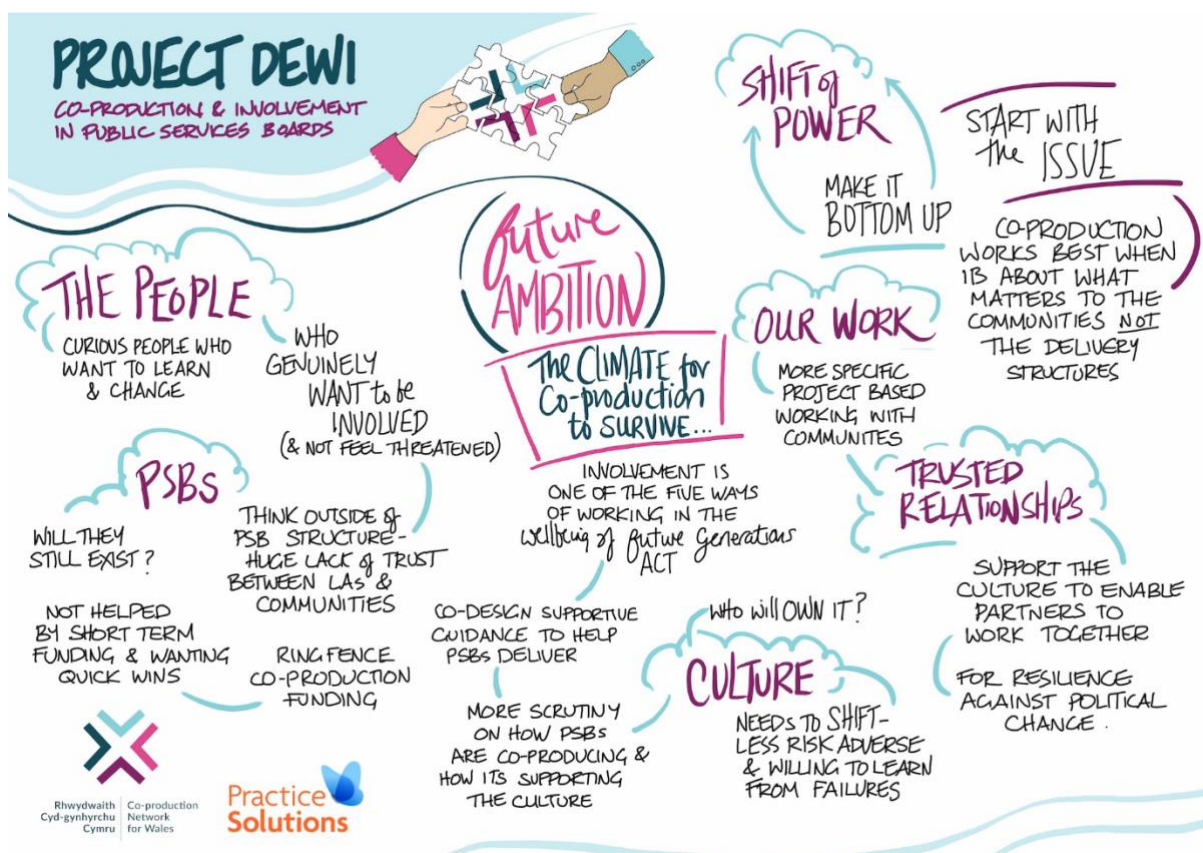 PROJECT DEWI
CO-PRODUCTION & INVOLVEMENT
IN PUBLIC SERVICES BOARDS
THE PEOPLE
CURIOUS PEOPLE WHO
WANT TO LEARN
& CHANGE
WHO
GENUINELY
WANT to be
INVOLVED
(& NOT FEEL THREATENED)
PSBs
WILL THEY
STILL EXIST?
THINK OUTSIDE of
PSB STRUCTURE-
HUGE LACK of TRUST
BETWEEN LAs &
COMMUNITIES
NOT HELPED
BY SHORT TERM
FUNDING & WANTING
QUICK WINS
RING FENCE
CO-PRODUCTION
FUNDING
future
AMBITION
The CLIMATE for
Co-production
to SURVIVE...
INVOLVEMENT IS
ONE OF THE FIVE WAYS
OF WORKING IN THE
Wellbeing of future Generations
ACT
CO-DESIGN SUPPORTIVE
GUIDANCE TO HELP
PSBS DELIVER
MORE SCRUTINY
ON HOW PSBs
ARE CO-PRODUCING &
HOW ITS SUPPORTING
THE CULTURE
SHIFT of
POWER
MAKE IT
BOTTOM UP
START WITH
the ISSUE
CO-PRODUCTION
WORKS BEST WHEN
IB ABOUT WHAT
MATTERS TO THE
COMMUNITIES NOT
THE DELIVERY
STRUCTURES
OUR WORK
MORE SPECIFIC
PROJECT BASED
WORKING WITH
COMMUNITES
TRUSTED
RELATIONSHIPS
SUPPORT THE
CULTURE TO ENABLE
PARTNERS TO
WORK TOGETHER
FOR RESILIENCE
AGAINST POLITICAL
CHANGE.
WHO Will OWN IT?
CULTURE
NEEDS TO SHIFT-
LESS RISK ADVERSE
& WILLING TO LEARN
FROM FAILURES
Rhwydwaith
Cyd-gynhyrchu
Cymru
Co-production
Network
for Wales
Practice
Solutions